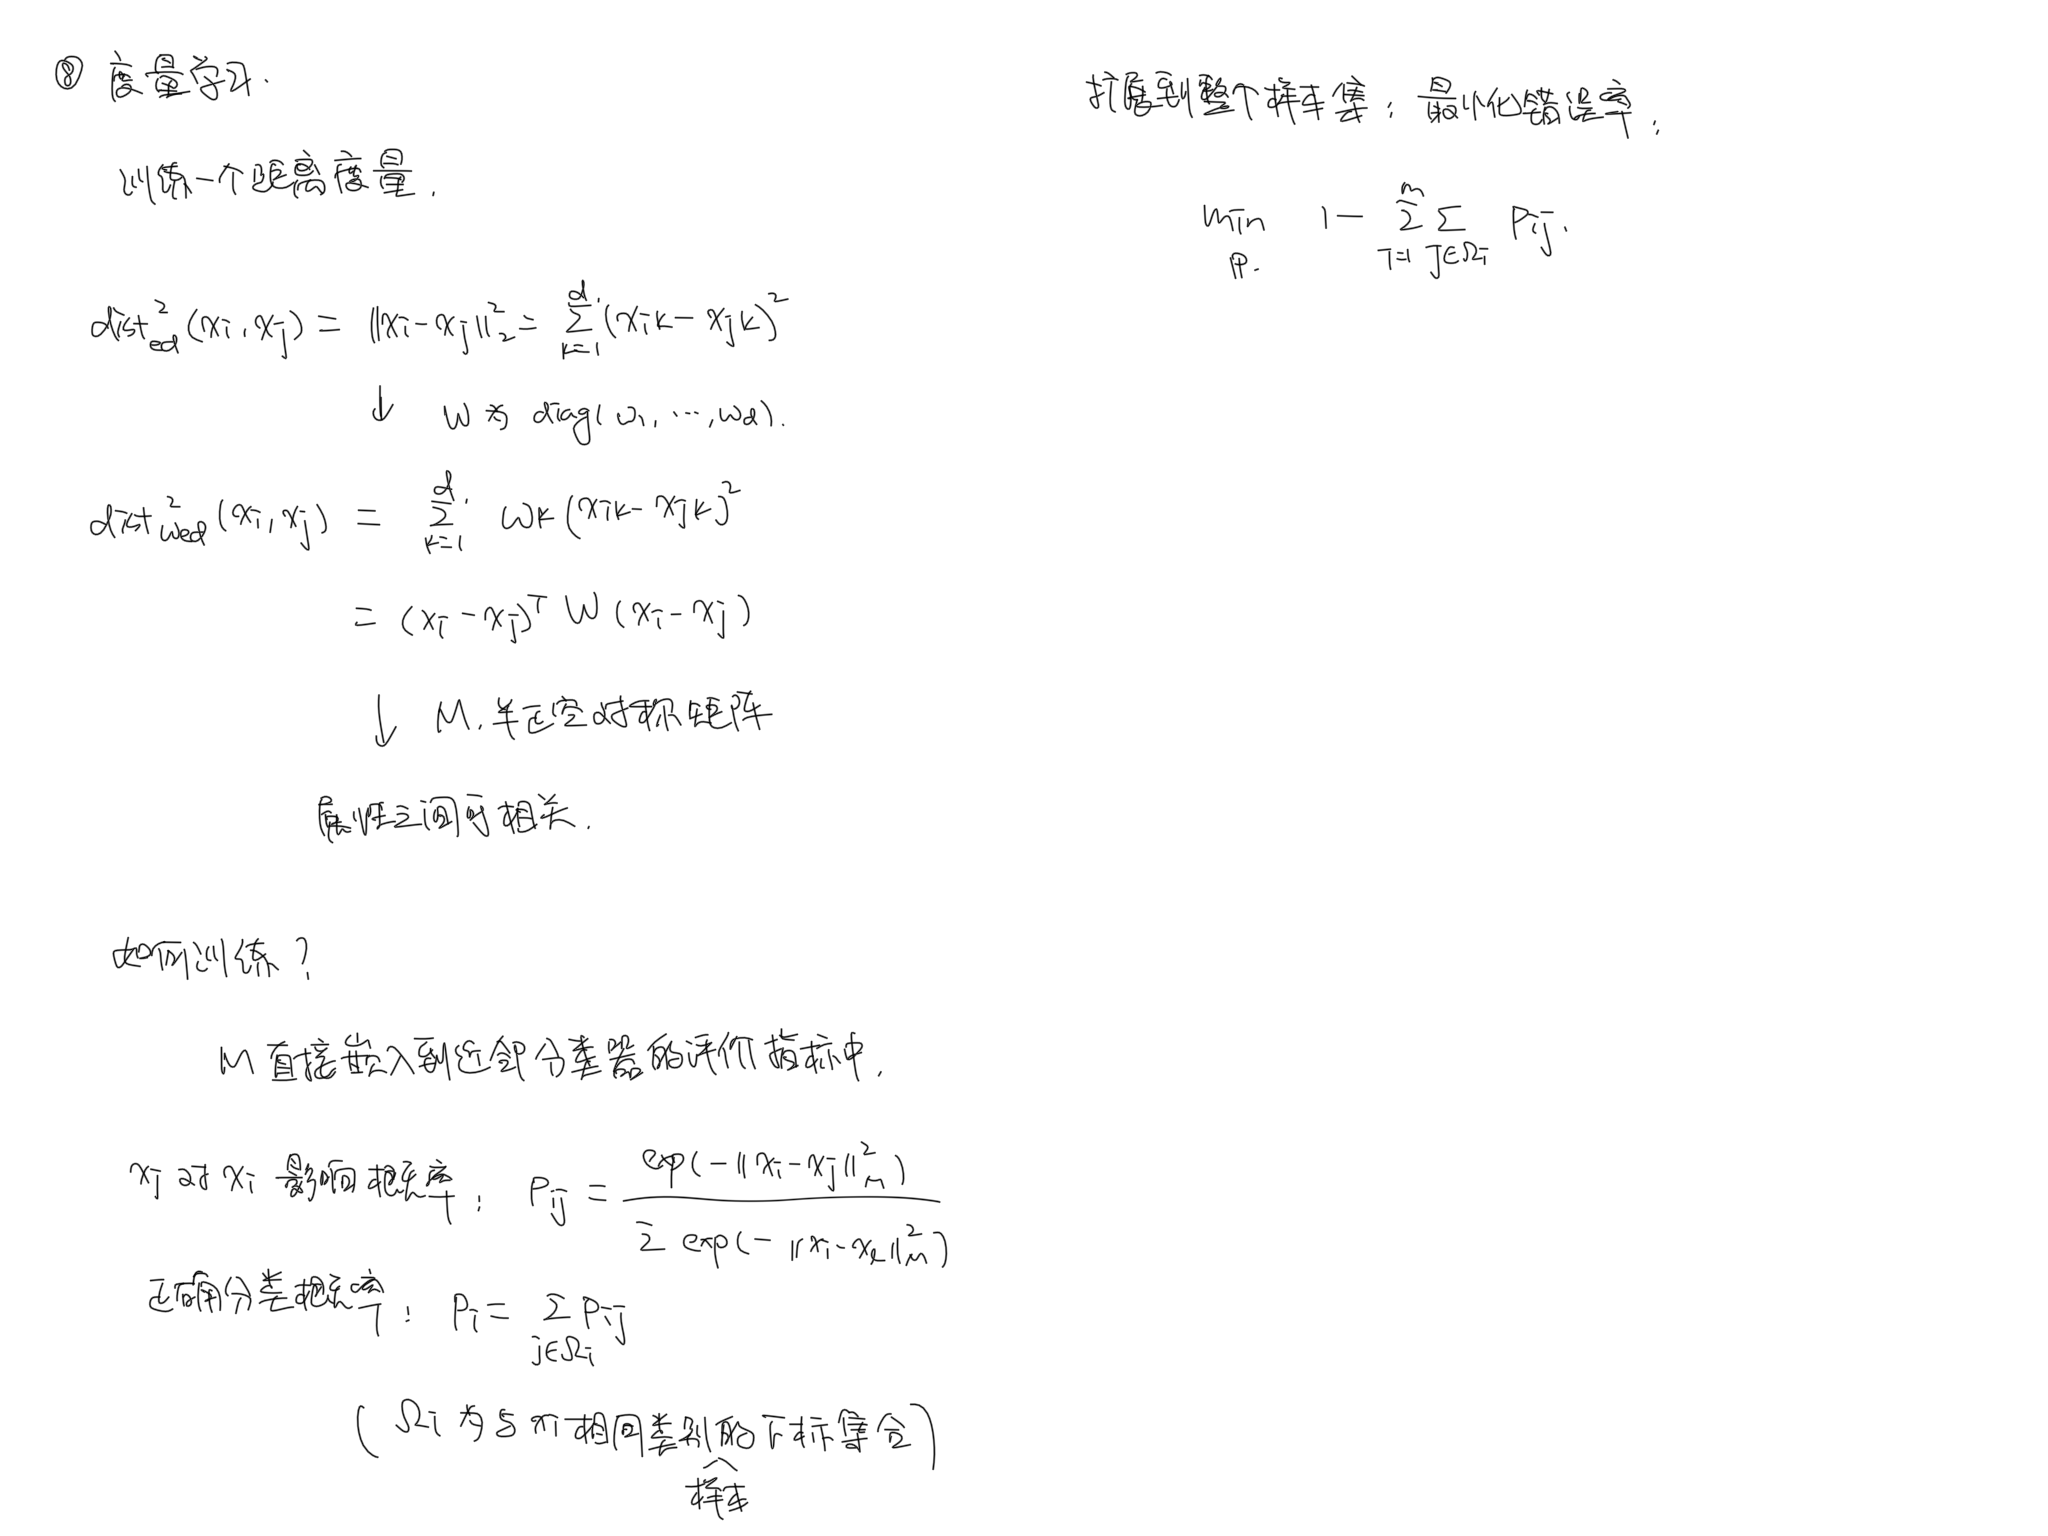 ⑧ 度量学习.
训练一个距离度量.
dist²_ed(xi, xj) = ||xi-xj||²₂ = Σ_{k=1}^{d} (xik - xjk)²
↓ W为 diag(w1, ···, wd).
dist²_wed(xi, xj) = Σ_{k=1}^{d} wk(xik - xjk)²
= (xi - xj)ᵀ W (xi - xj)
↓ M. 半正定对称矩阵
属性之间可相关.
如何训练?
M 直接嵌入到近邻分类器的评价指标中.
xj 对 xi 影响概率: Pij = exp(-||xi-xj||²_M) / Σ exp(-||xi-xl||²_M)
正确分类概率: Pi = Σ_{j∈Ωi} Pij
(Ωi 为与 xi 相同类别的下标集合)
样本
扩展到整个样本集: 最小化错误率:
min_P. 1 - Σ_{i=1}^{m} Σ_{j∈Ωi} Pij.